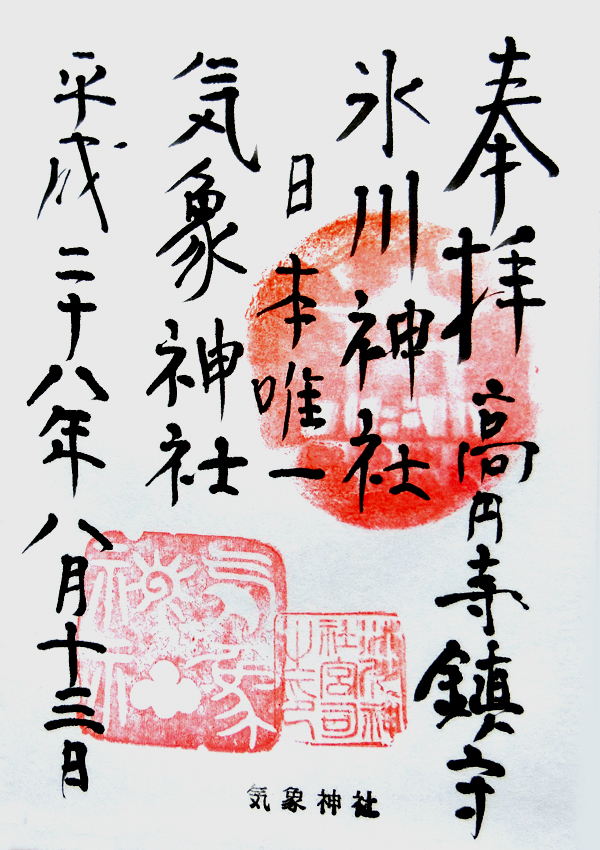 奉拝
高円寺鎮守
氷川神社
日本唯一
気象神社
平成二十八年八月十三日
気象神社
気象神社